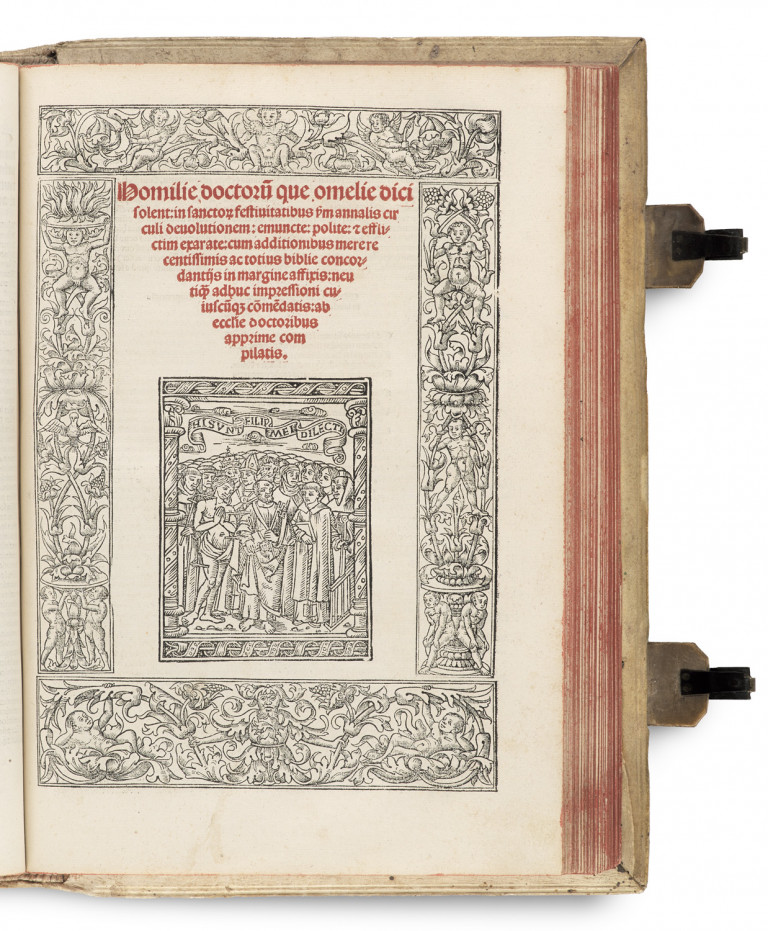 Homilie doctorū que omelie dici
solent: in sanctoꝝ festiuitatibus ẜm annalis cir
culi deuolutionem: emuncte: polite: ⁊ effi-
ctim exarate: cum additionibus mere re
centissimis ac totius biblie concor-
dantijs in margine affixis: neu
tiqꝫ adhuc impressioni cu-
iuscūqꝫ cōmēdatis: ab
ecclesie doctoribus
apprime com
pilatis.
HI SVNT FILII
MEI DILECTI